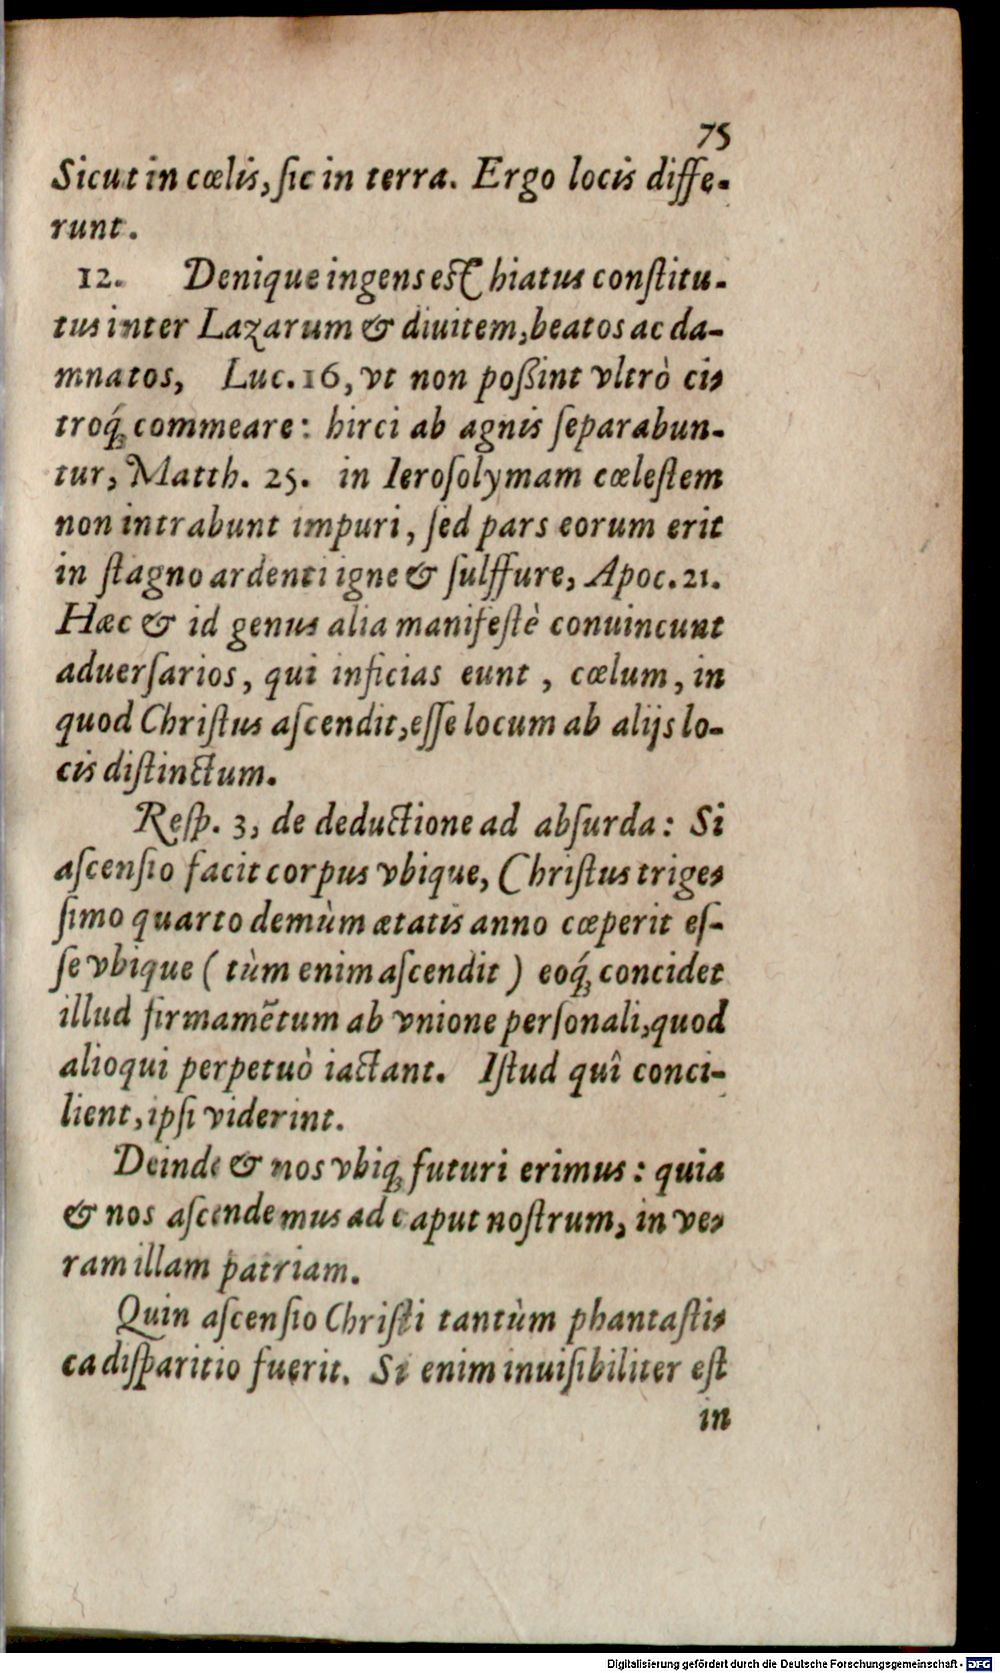 75
Sicut in cœlis, ſic in terra. Ergo locis diffe-
runt.
12. Denique ingens est hiatus conſtitu-
tus inter Lazarum & diuitem, beatos ac da-
mnatos, Luc. 16, vt non poßint vltrò ci-
troq́; commeare: hirci ab agnis ſeparabun-
tur, Matth. 25. in Ieroſolymam cœleſtem
non intrabunt impuri, ſed pars eorum erit
in ſtagno ardenti igne & ſulffure, Apoc. 21.
Hæc & id genus alia manifeſtè conuincunt
aduerſarios, qui inficias eunt, cœlum, in
quod Chriſtus aſcendit, eſſe locum ab alijs lo-
cis diſtinctum.
Reſp. 3, de deductione ad abſurda: Si
aſcenſio facit corpus vbique, Chriſtus trige-
ſimo quarto demùm ætatis anno cœperit eſ-
ſe vbique (tùm enim aſcendit) eoq́; concidet
illud firmamẽtum ab vnione perſonali, quod
alioqui perpetuò iactant. Iſtud quî conci-
lient, ipſi viderint.
Deinde & nos vbiq; futuri erimus: quia
& nos aſcendemus ad caput noſtrum, in ve-
ram illam patriam.
Quin aſcenſio Chriſti tantùm phantaſti-
ca diſparitio fuerit. Si enim inuiſibiliter eſt
in
Digitalisierung gefördert durch die Deutsche Forschungsgemeinschaft - DFG